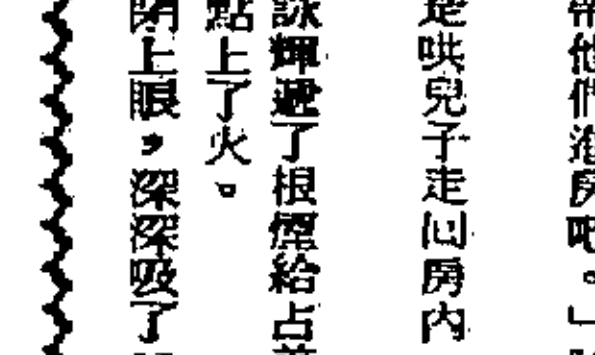 帶他們進房吧。」
是哄兒子走回房內
詠輝遞了根煙給占
點上了火。
閉上眼,深深吸了